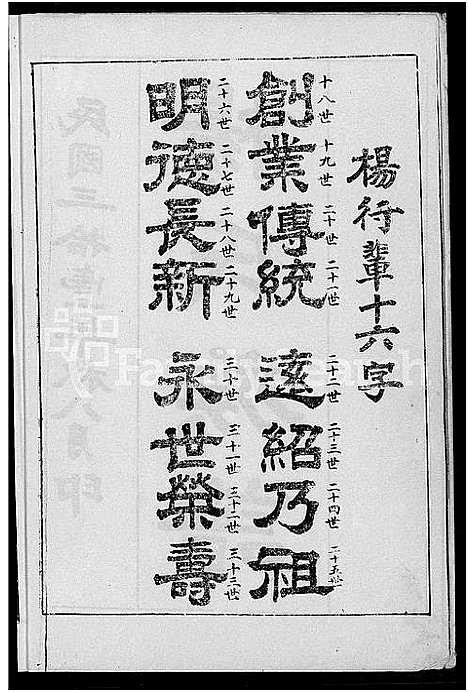 楊行輩十六字
創業傳統 遠紹乃祖
十八世 十九世 二十世 二十一世 二十二世 二十三世 二十四世 二十五世
明德長新 永世榮壽
二十六世 二十七世 二十八世 二十九世 三十世 三十一世 三十二世 三十三世
FamilySearch